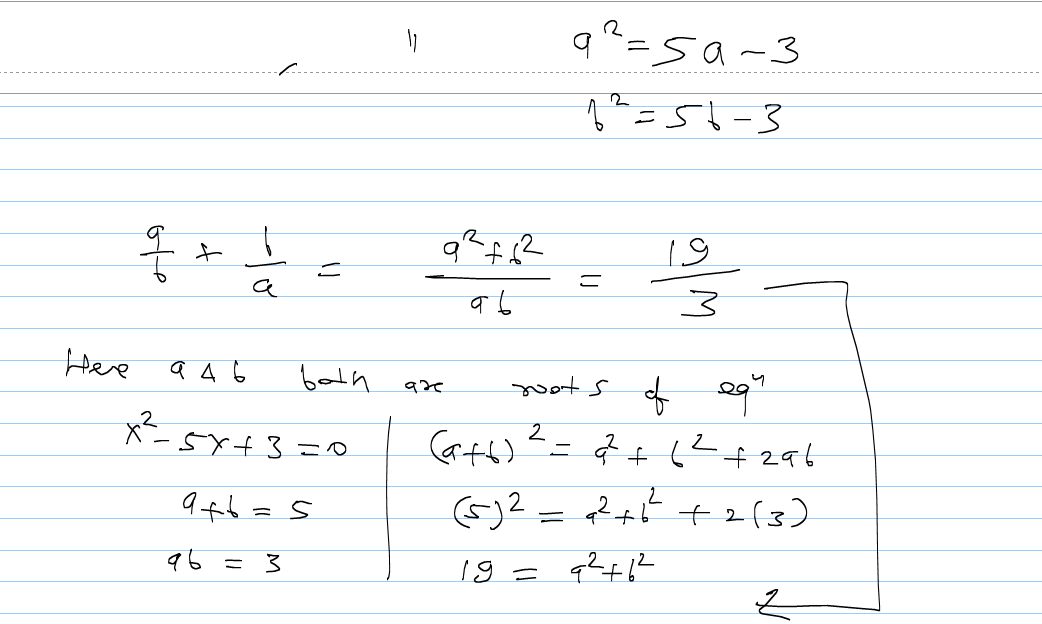 11 a² = 5a - 3
b² = 5b - 3
a/b + b/a = (a² + b²)/ab = 19/3
Here a & b both are roots of eqⁿ
x² - 5x + 3 = 0 | (a+b)² = a² + b² + 2ab
a + b = 5 | (5)² = a² + b² + 2(3)
ab = 3 | 19 = a² + b²